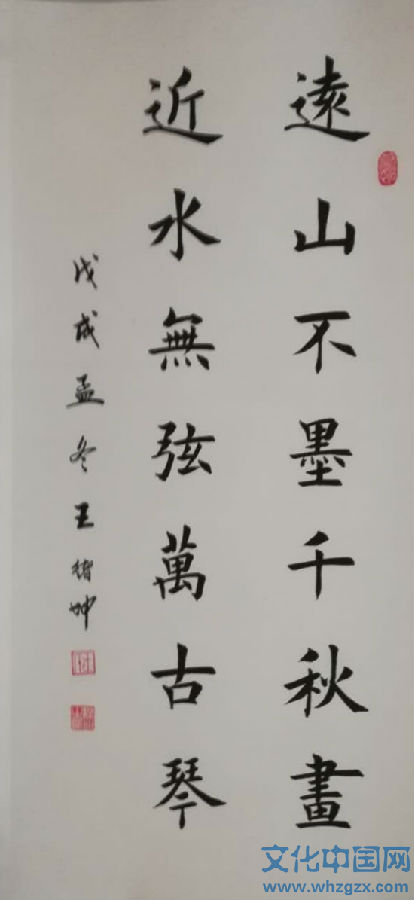 遠山不墨千秋畫
近水無弦萬古琴
戊戌孟冬王緒坤
文化中国网
www.whzgzx.com